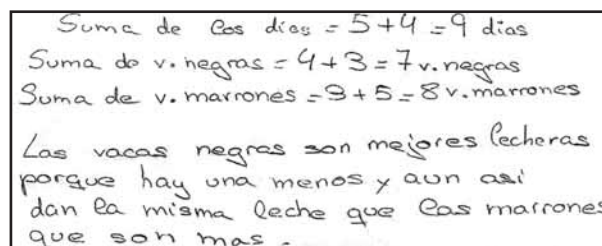 Suma de los días = 5+4 = 9 días
Suma de v. negras = 4+3 = 7 v. negras
Suma de v. marrones = 3+5 = 8 v. marrones
Las vacas negras son mejores lecheras
porque hay una menos y aun asi
dan la misma leche que las marrones
que son mas.